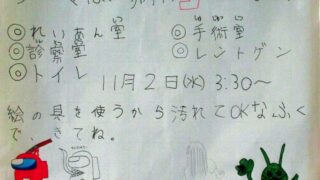 ◎れいあん室 ◎手術室
◎診察室 ◎レントゲン
◎トイレ
11月2日(水) 3:30～
絵の具を使うから汚れてOKなふく
で、きてね。